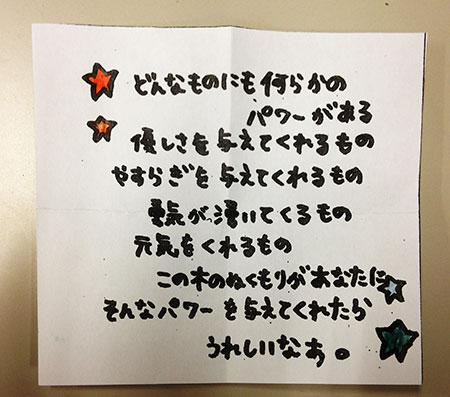 どんなものにも何らかの
パワーがある
優しさを与えてくれるもの
やすらぎを与えてくれるもの
勇気が湧いてくるもの
元気をくれるもの
この木のぬくもりがあなたに
そんなパワーを与えてくれたら
うれしいなぁ。